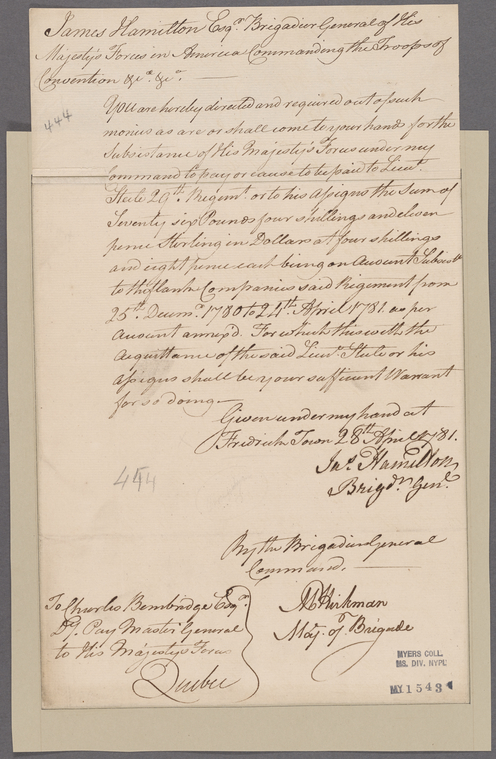 James Hamilton Esqr. Brigadier General of His
Majesty's Forces in America Commanding the Troops of
Convention &ca. &ca.
444
You are hereby directed and required out of such
monies as are or shall come to your hands for the
Subsistance of His Majesty's Forces under my
command to pay or cause to be paid to Lieut.
Steele 29th. Regimt. or to his assigns the Sum of
Seventy six Pounds four shillings and eleven
pence Sterling in Dollars at four shillings
and eight pence each being on Account Subsce.
to the flank Companies said Regiment from
25th. Decemr. 1780 to 24th. April 1781. as per
Account annex'd. For which this with the
Acquittance of the said Lieut. Steele or his
assigns shall be your sufficient Warrant
for so doing.
Given under my hand at
Fredrick Town 28th April 1781.
Jas. Hamilton
Brigdr. Genl.
454
By the Brigadier General
Command.
To Charles Bembridge Esqr.
Dy. Pay Master General
to His Majesty's Forces
Quebec
M Kirkman
Maj. of Brigade
MYERS COLL.
MS. DIV. NYPL
MY 1543